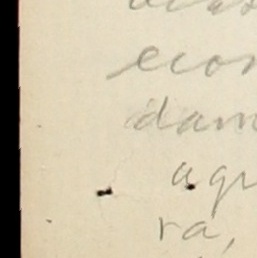 econ
dam
agr
ra,